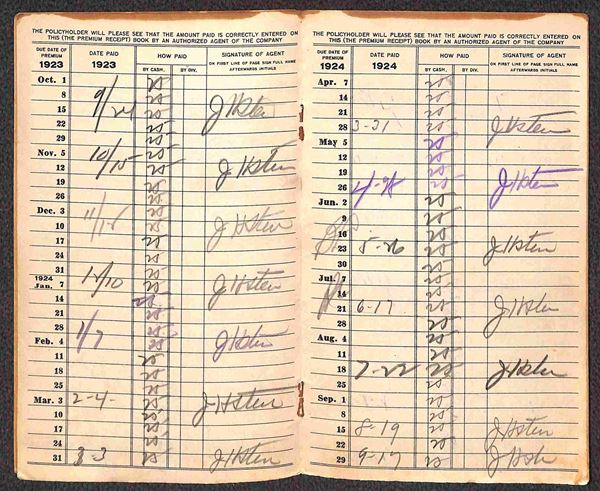 THE POLICYHOLDER WILL PLEASE SEE THAT THE AMOUNT PAID IS CORRECTLY ENTERED ON
THIS (THE PREMIUM RECEIPT) BOOK BY AN AUTHORIZED AGENT OF THE COMPANY
DUE DATE OF PREMIUM 1923
DATE PAID 1923
HOW PAID
BY CASH. BY DIV.
SIGNATURE OF AGENT
ON FIRST LINE OF PAGE SIGN FULL NAME
AFTERWARDS INITIALS
Oct. 1
8
15 9/24 J H Stein
22
29
Nov. 5 10/15
12 J H Stein
19
26
Dec. 3
10 J H Stein
17
24
31
1924
Jan. 7 12/10 J H Stein
14
21
28
Feb. 4 1/7 J H Stein
11
18
25
Mar. 3 2-4- J H Stein
10
17
24
31 3-3 J H Stein
THE POLICYHOLDER WILL PLEASE SEE THAT THE AMOUNT PAID IS CORRECTLY ENTERED ON
THIS (THE PREMIUM RECEIPT) BOOK BY AN AUTHORIZED AGENT OF THE COMPANY
DUE DATE OF PREMIUM 1924
DATE PAID 1924
HOW PAID
BY CASH. BY DIV.
SIGNATURE OF AGENT
ON FIRST LINE OF PAGE SIGN FULL NAME
AFTERWARDS INITIALS
Apr. 7
14
21
28 3-31 J H Stein
May 5
12
19
26 J H Stein
Jun. 2
9
16
23 5-26 J H Stein
30
Jul. 7
14
21 6-17 J H Stein
28
Aug. 4
11
18 7-22 J H Stein
25
Sep. 1
8
15 8-19 J H Stein
22
29 9-17 J H Stein